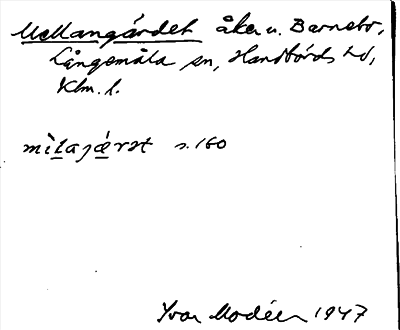 Mellangärdet åker u. Barnebo,
Långemåla sn, Handbörds hd,
Klm. l.
mìlajǽrət s. 160
Ivar Modéer 1947